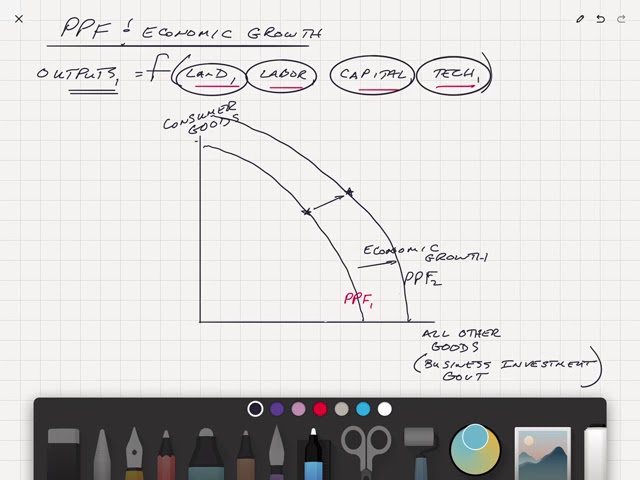 PPF & ECONOMIC GROWTH
OUTPUTS₁ = f(LAND₁ LABOR CAPITAL₁ TECH₁)
CONSUMER
GOODS
ECONOMIC
GROWTH
PPF₂
PPF₁
ALL OTHER
GOODS
(BUSINESS INVESTMENT
GOVT)